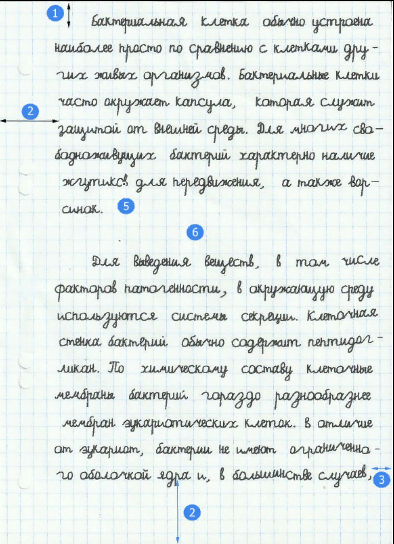 1
Бактериальная клетка обычно устроена
наиболее просто по сравнению с клетками дру-
гих живых организмов. Бактериальные клетки
2
часто окружает капсула, которая служит
защитой от внешней среды. Для многих сво-
бодноживущих бактерий характерно наличие
жгутиков для передвижения, а также вор-
синок.
5
6
Для выведения веществ, в том числе
факторов патогенности, в окружающую среду
используются системы секреции. Клеточная
стенка бактерий обычно содержит пептидог-
ликан. По химическому составу клеточные
мембраны бактерий гораздо разнообразнее
мембран эукариотических клеток. В отличие
от эукариот, бактерии не имеют ограниченно-
го оболочкой ядра и, в большинстве случаев,
3
2